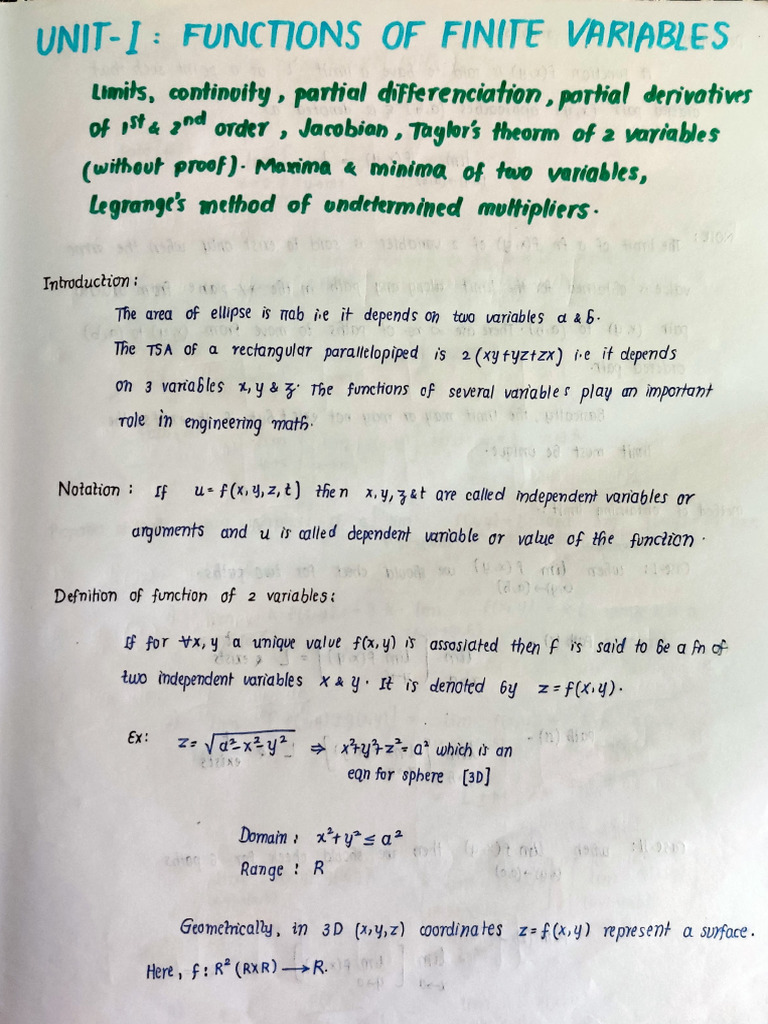 UNIT-I: FUNCTIONS OF FINITE VARIABLES
Limits, continuity, partial differenciation, partial derivatives
of 1st & 2nd order, Jacobian, Taylor's theorm of 2 variables
(without proof). Maxima & minima of two variables,
Legrange's method of undetermined multipliers.
Introduction:
The area of ellipse is πab i.e it depends on two variables a & b.
The TSA of a rectangular parallelopiped is 2(xy+yz+zx) i.e it depends
on 3 variables x, y & z. The functions of several variables play an important
role in engineering math.
Notation: If u=f(x,y,z,t) then x,y,z & t are called independent variables or
arguments and u is called dependent variable or value of the function.
Defnition of function of 2 variables:
If for ∀x,y a unique value f(x,y) is assosiated then f is said to be a fn of
two independent variables x & y. It is denoted by z=f(x,y).
Ex: z=√(a²-x²-y²) ⇒ x²+y²+z²=a² which is an
eqn for sphere [3D]
Domain: x²+y²≤a²
Range: R
Geometrically, in 3D (x,y,z) coordinates z=f(x,y) represent a surface.
Here, f: R²(R×R)⟶R.